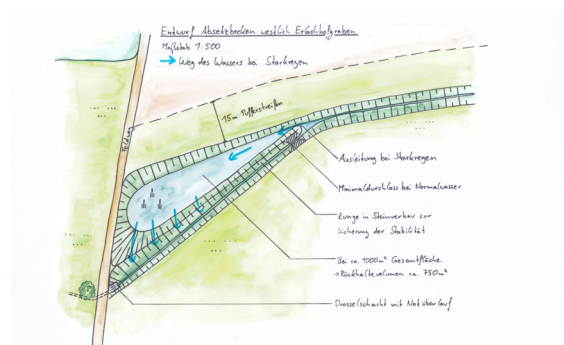 Entwurf Absetzbecken westlich Erlachhofgraben
Maßstab 1:500
Weg des Wassers bei Starkregen
15m Pufferstreifen
Feldweg
Ausleitung bei Starkregen
Minimaldurchlass bei Normalwasser
Zunge in Steinverbau zur
Sicherung der Stabilität
Bei ca. 1000m² Gesamtfläche
→ Rückhaltevolumen ca. 750m³
Drosselschacht mit Notüberlauf